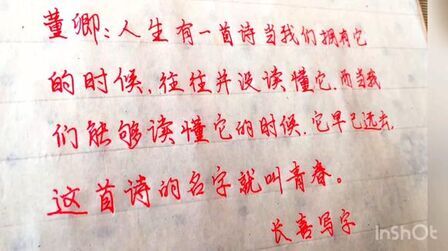 董卿:人生有一首诗当我们拥有它
的时候,往往并没读懂它,而当我
们能够读懂它的时候,它早已远去,
这首诗的名字就叫青春。
长喜写字
InShot